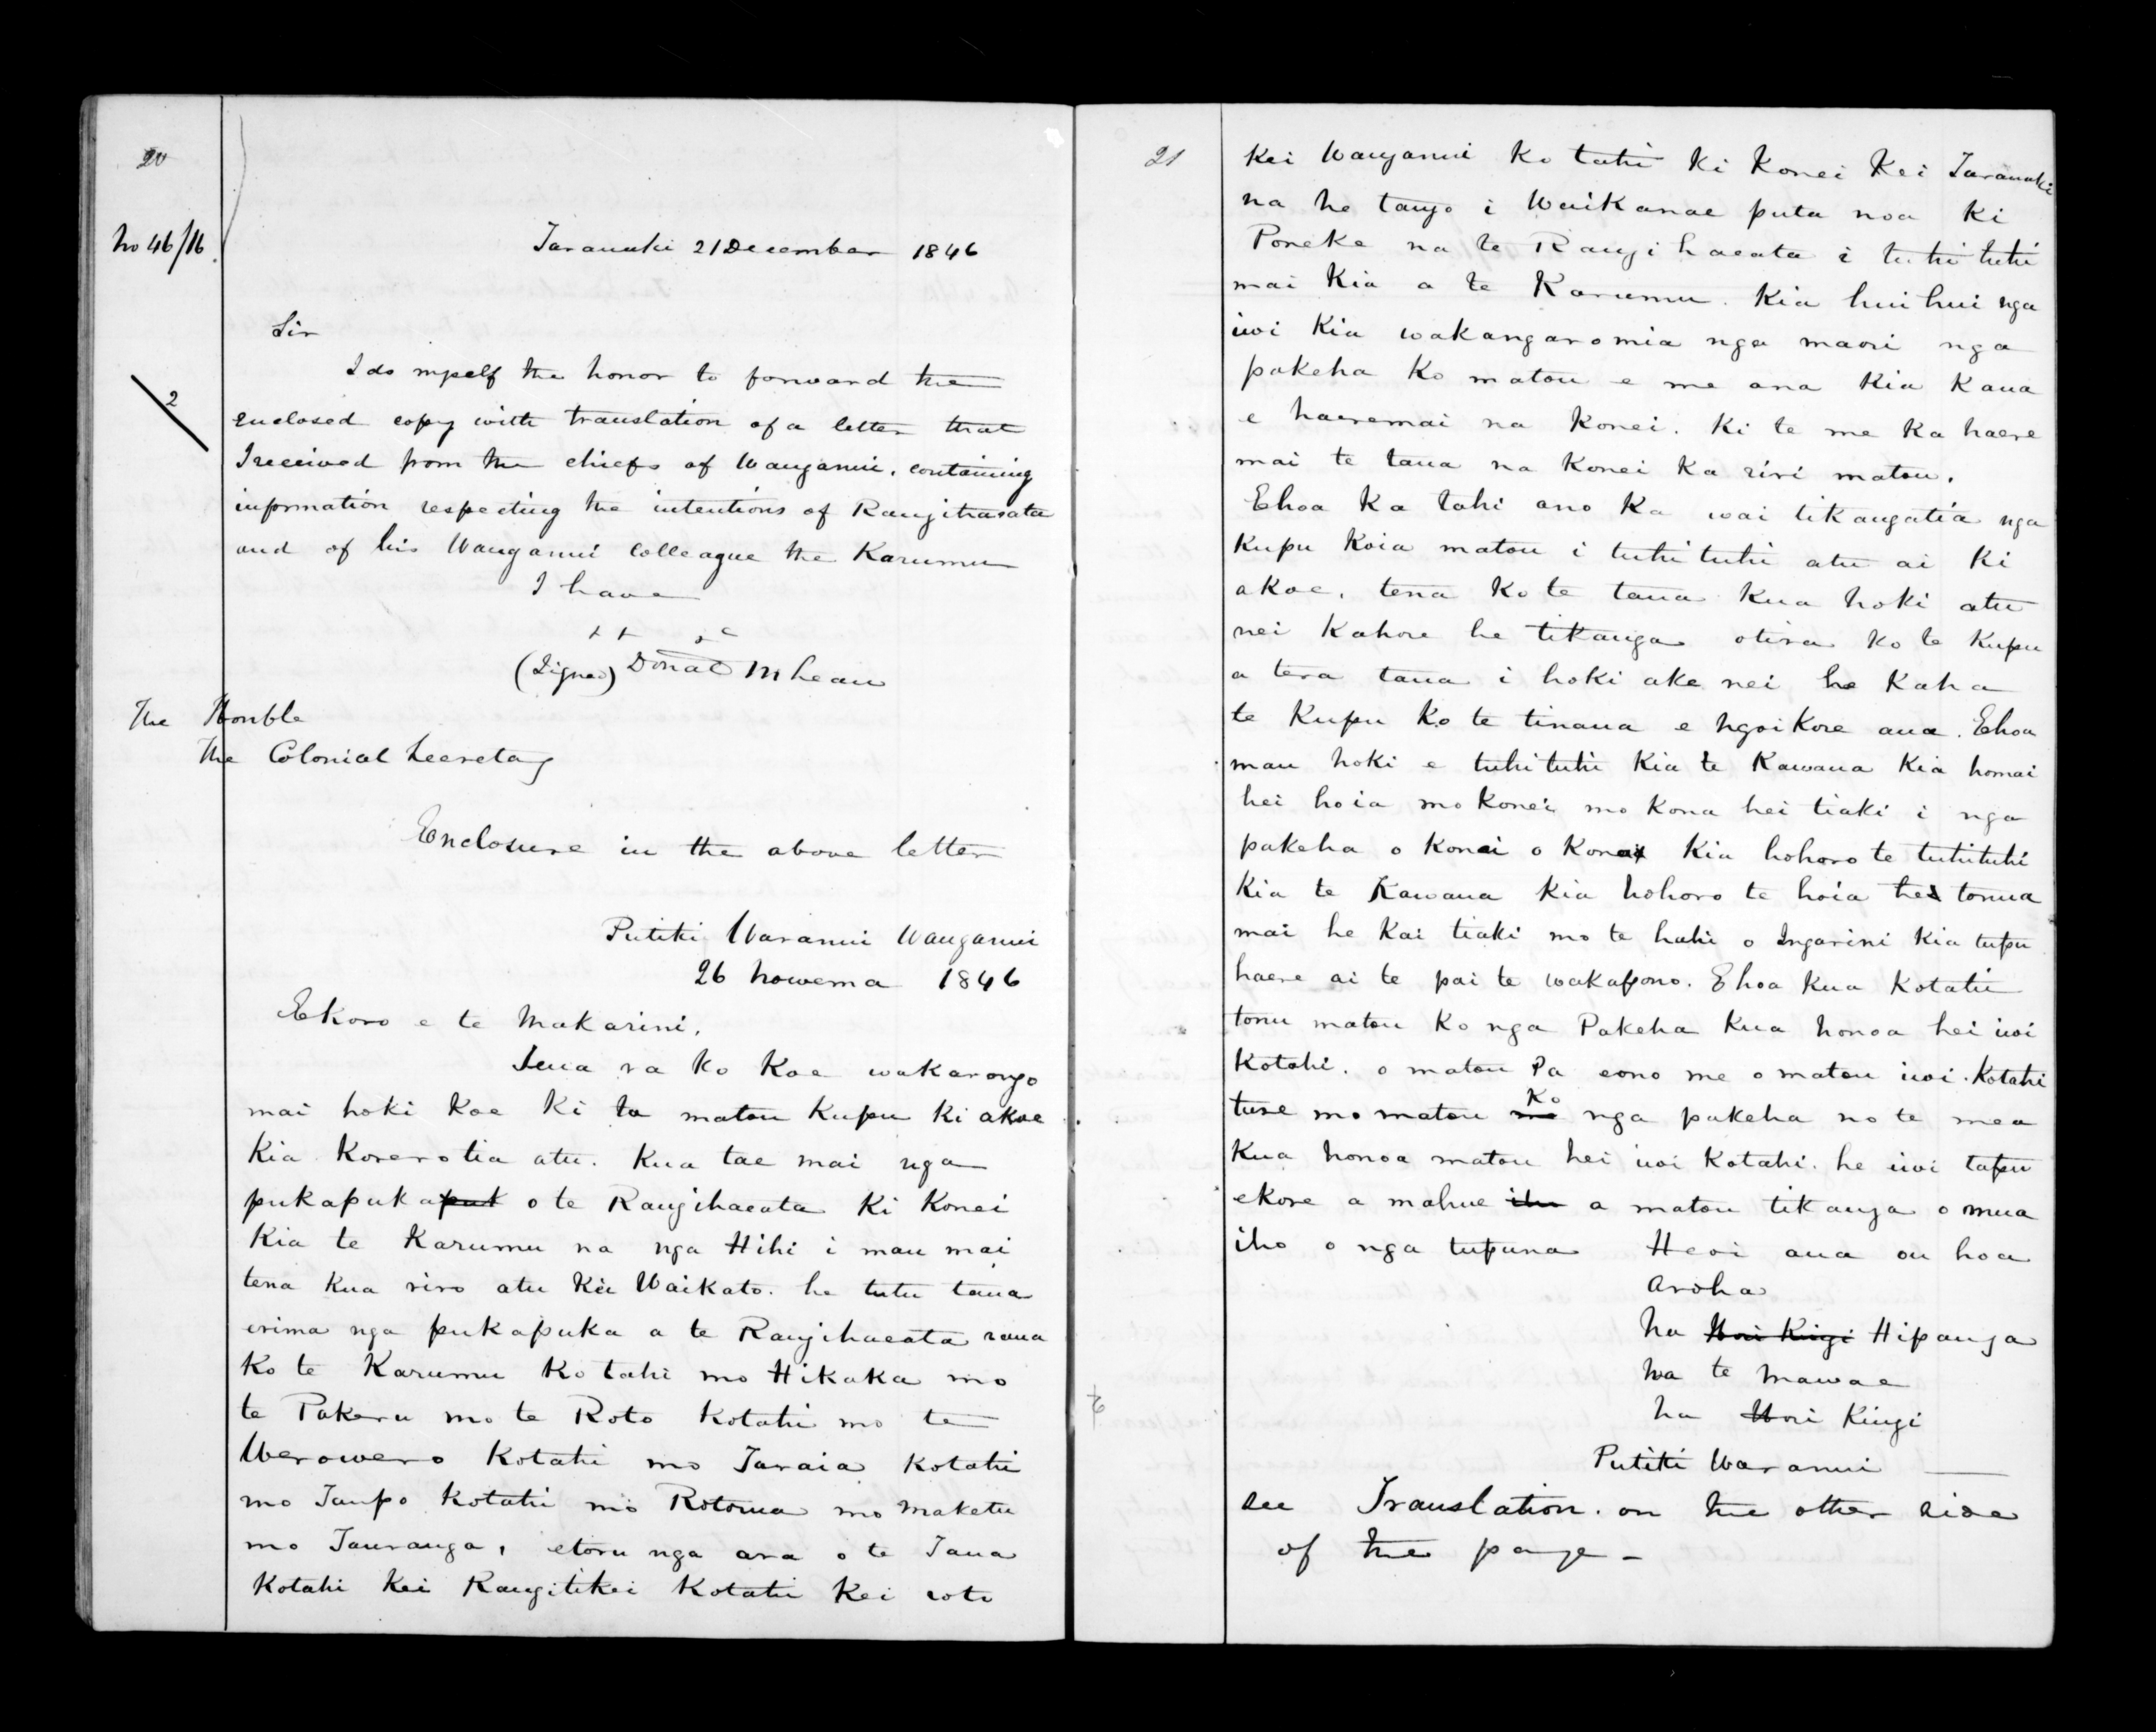 20
No 46/16
Taranaki 21 December 1846
Sir
I do myself the honor to forward the
2
enclosed copy with translation of a letter that
I received from the chiefs of Wanganui, containing
information respecting the intentions of Rangihaeata
and of his Wanganui colleague the Karumu
I have
(Signed) Donald McLean
The Honble
The Colonial Secretary
Enclosure in the above letter
Putiki Waranui Wanganui
26 Nowema 1846
Ekoro e te Makarini,
Tena ra ko Koe wakarongo
mai hoki Koe Ki ta matou Kupu Ki akoe
Kia Korerotia atu. Kua tae mai nga
pukapuka o te Rangihaeata Ki Konei
Kia te Karumu na nga Hihi i mau mai
tena kua riro atu Kei Waikato. he tutu taua
erima nga pukapuka a te Rangihaeata raua
Ko te Karumu Ko tahi mo Hikaka mo
te Pakeru mo te Roto Kotahi mo te
Werowero Kotahi mo Taraia Kotahi
mo Taupo Kotahi mo Rotorua mo Maketu
mo Tauranga, etoru nga ara o te Taua
Kotahi Kei Rangitikei Kotahi Kei roto
21
Kei Wanganui Ko tahi Ki Konei Kei Taranaki
na he tango i Waikanae puta noa Ki
Poneke na te Rangihaeata i tuhi tuhi
mai Kia a te Karumu. Kia hui hui nga
iwi Kia wakangaromia nga maori nga
pakeha Ko matou e me ana Kia Kaua
e haeremai na Konei. Ki te me Ka haere
mai te taua na Konei Ka riri matou.
Ehoa Ka tahi ano Ka wai tikangatia nga
Kupu Koia matou i tuhi tuhi atu ai Ki
akoe, tena Ko te taua Kua hoki atu
nei Kahore he tikanga otira Ko te Kupu
a tera taua i hoki ake nei he Kaha
te Kupu Ko te tinana e ngoikore ana. Ehoa
mau hoki e tuhituhi Kia te Kawana Kia homai
hei hoia mo Konei mo Kona hei tiaki i nga
pakeha o Konei o Kona Kia hohoro te tuhituhi
Kia te Kawana Kia hohoro te hoia te tonua
mai he Kai tiaki mo te hahi o Ingarini Kia tupu
haere ai te pai te wakapono. Ehoa Kua Kotahi
tonu matou Ko nga Pakeha Kua honoa hei iwi
Kotahi. o matou Pa eono me o matou iwi. Kotahi
ture mo matou Ko nga pakeha no te mea
Kua honoa matou hei iwi Kotahi. he iwi tapu
ekore a mahue a matou tikanga o mua
iho o nga tupuna Heoi ana ou hoa
Aroha
Na Hori Kingi Hipango
Na te Mawae
Na Hori Kingi
Putiki Waranui
See Translation. on the other side
of the page -